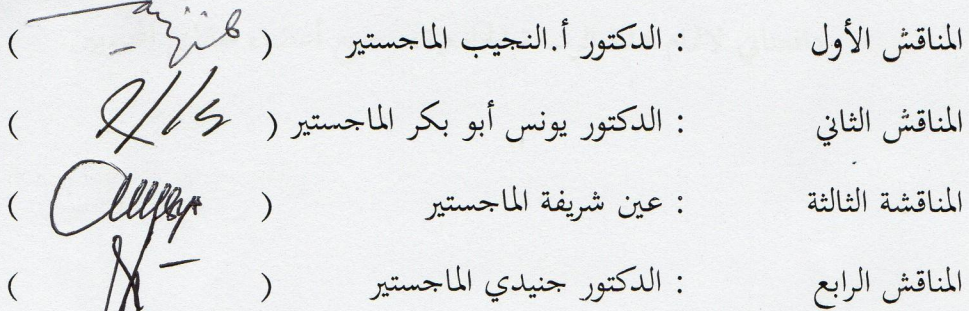 المناقش الأول : الدكتور أ.النجيب الماجستير ( )
المناقش الثاني : الدكتور يونس أبو بكر الماجستير ( )
المناقشة الثالثة : عين شريفة الماجستير ( )
المناقش الرابع : الدكتور جنيدي الماجستير ( )